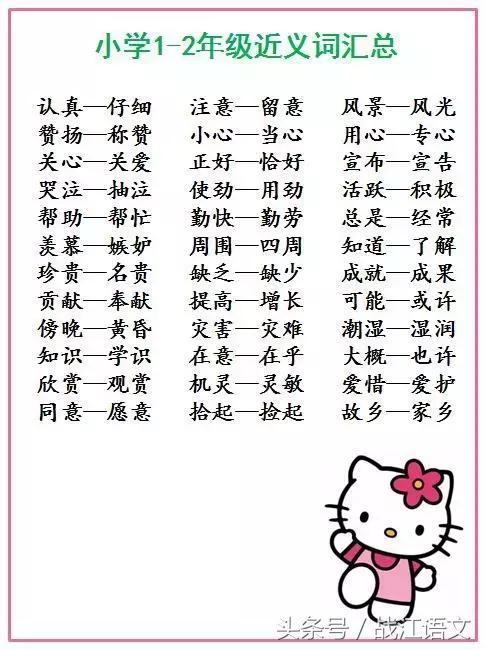 小学1-2年级近义词汇总
认真—仔细 注意—留意 风景—风光
赞扬—称赞 小心—当心 用心—专心
关心—关爱 正好—恰好 宣布—宣告
哭泣—抽泣 使劲—用劲 活跃—积极
帮助—帮忙 勤快—勤劳 总是—经常
羡慕—嫉妒 周围—四周 知道—了解
珍贵—名贵 缺乏—缺少 成就—成果
贡献—奉献 提高—增长 可能—或许
傍晚—黄昏 灾害—灾难 潮湿—湿润
知识—学识 在意—在乎 大概—也许
欣赏—观赏 机灵—灵敏 爱惜—爱护
同意—愿意 拾起—捡起 故乡—家乡
头条号/战江语文